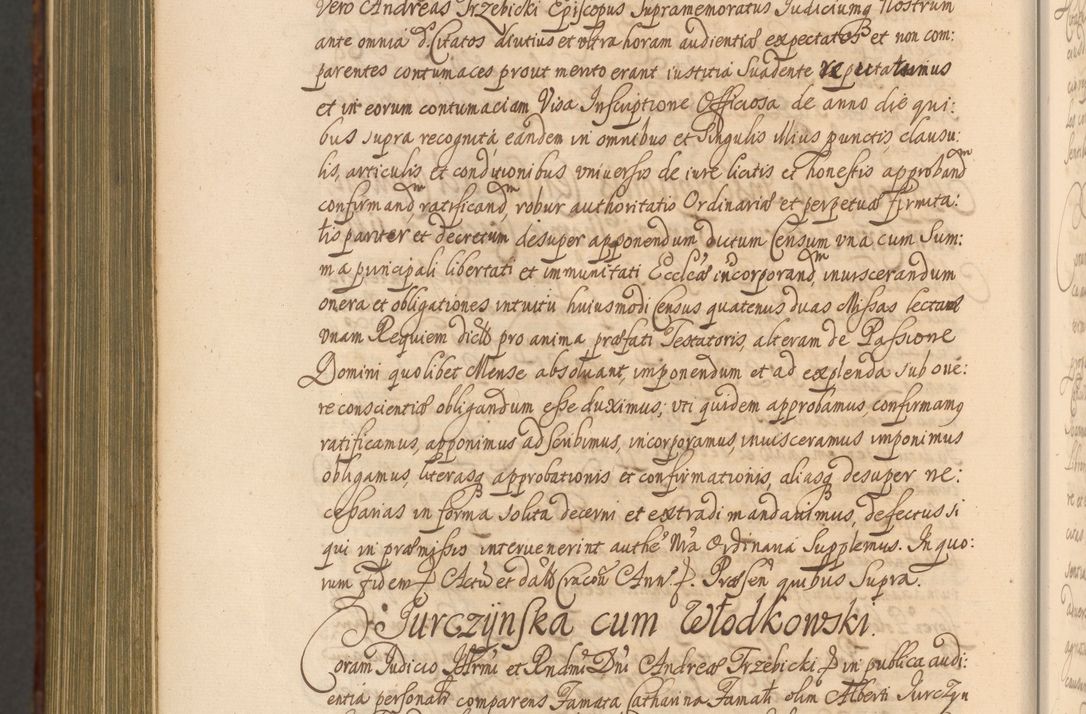 Vero Andreas Trzebicki Episcopus supramemoratus Judiciumq Nostrum
ante omnia d. Citatos diutius et vltra horam audientiæ expectatos et non com:
parentes contumaces prout merito erant iustitia suadente reputatumus
et in eorum contumaciam Visa Inscriptione Officiosa de anno die qui:
bus supra recognita eandem in omnibus et singulis illius punctis, clausu:
lis, articulis et conditionibus vniuersis de iure licitis et honestis approband
confirmand, ratificand, robur authoritatis Ordinariæ et perpetuæ firmita:
tis pariter et decretum desuper apponendum dictum Censum vna cum Sum:
ma principali libertati et immunitati Eccleæ incorporand, inuiscerandum
onera et obligationes intuitu huiusmodi Census quatenus duas Missas lectas
vnam Requiem dicto pro anima præfati Testatoris, alteram de Passione
Domini quolibet Mense absoluant, imponendum et ad explenda sub oné:
re conscientiæ obligandum esse duximus; vti quidem approbamus, confirmamq
ratificamus, apponimus adscribimus, incorporamus, inuisceramus imponimus
obligamus, literasq approbationis et confirmationis, aliasq desuper ne:
cessarias in forma solita decerni et extradi mandauimus, defectus si
qui in præmissis interuenerint authe Nra Ordinaria Supplemus. In quo:
rum fidem Actu et datt Cracou Ann. Præsen quibus Supra.
Jurczynska cum Włodkowski.
Coram Judicio Illrmi et Rndmi Dni Andreæ Trzebicki in publica audi:
entia personalr comparens Famata Catharina Famati olim Alberti Jurczyn